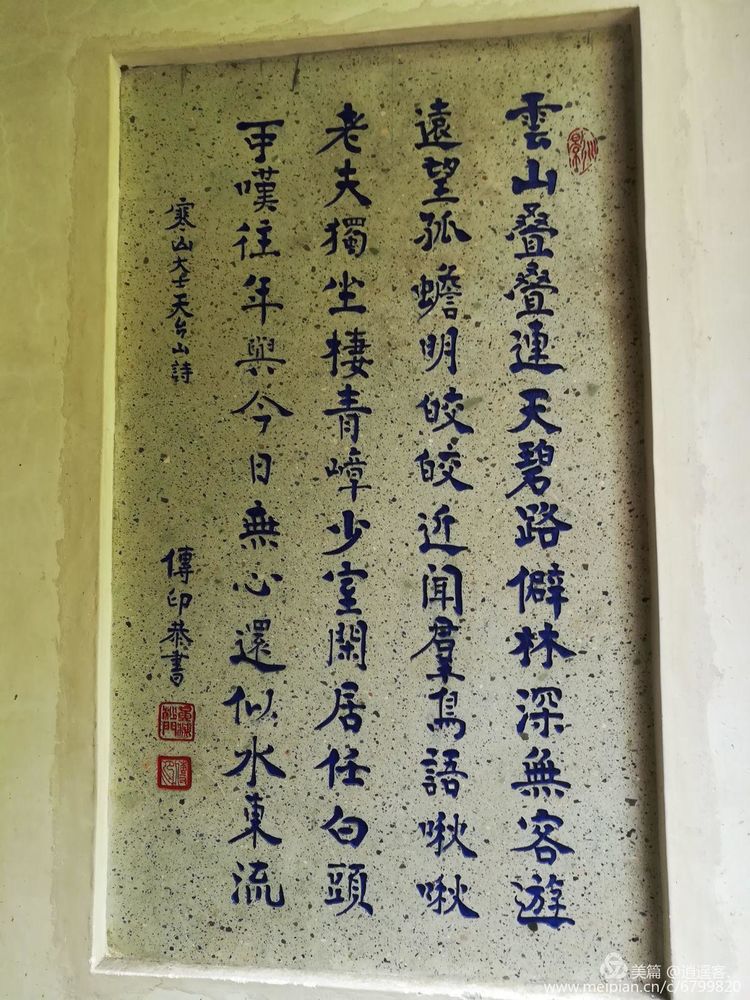 雲山叠叠連天碧路僻林深無客遊
遠望孤蟾明皎皎近聞羣鳥語啾啾
老夫獨坐棲青嶂少室閑居任白頭
可嘆往年與今日無心還似水東流
寒山大士天台山詩
傳印恭書
美篇 @逍遥客.
www.meipian.cn/c/6799820